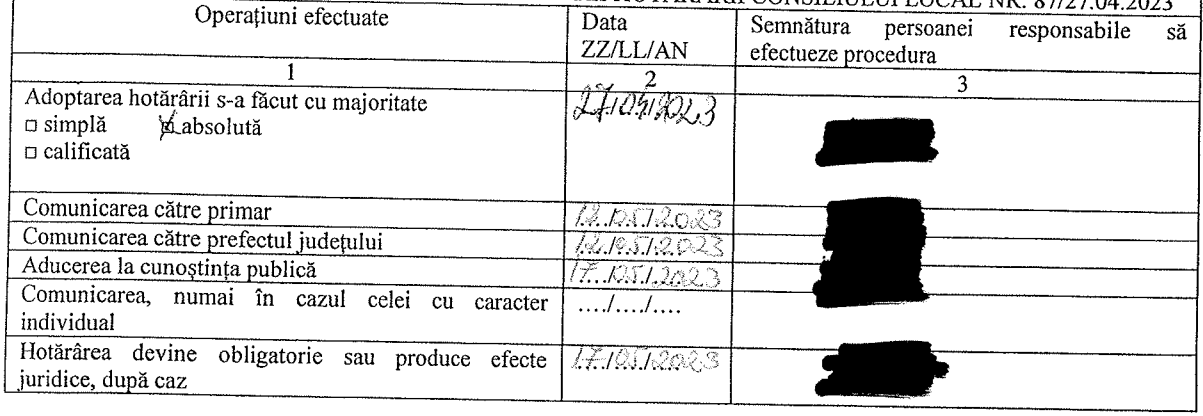 HOTĂRÂRII CONSILIULUI LOCAL NR. 87/27.04.2023
Operațiuni efectuate
Data
ZZ/LL/AN
Semnătura persoanei responsabile să
efectueze procedura
1
2
3
Adoptarea hotărârii s-a făcut cu majoritate
□ simplă ☒ absolută
□ calificată
27/04/2023
Comunicarea către primar
12/05/2023
Comunicarea către prefectul județului
12/05/2023
Aducerea la cunoștința publică
17/05/2023
Comunicarea, numai în cazul celei cu caracter
individual
…./…./….
Hotărârea devine obligatorie sau produce efecte
juridice, după caz
17/05/2023